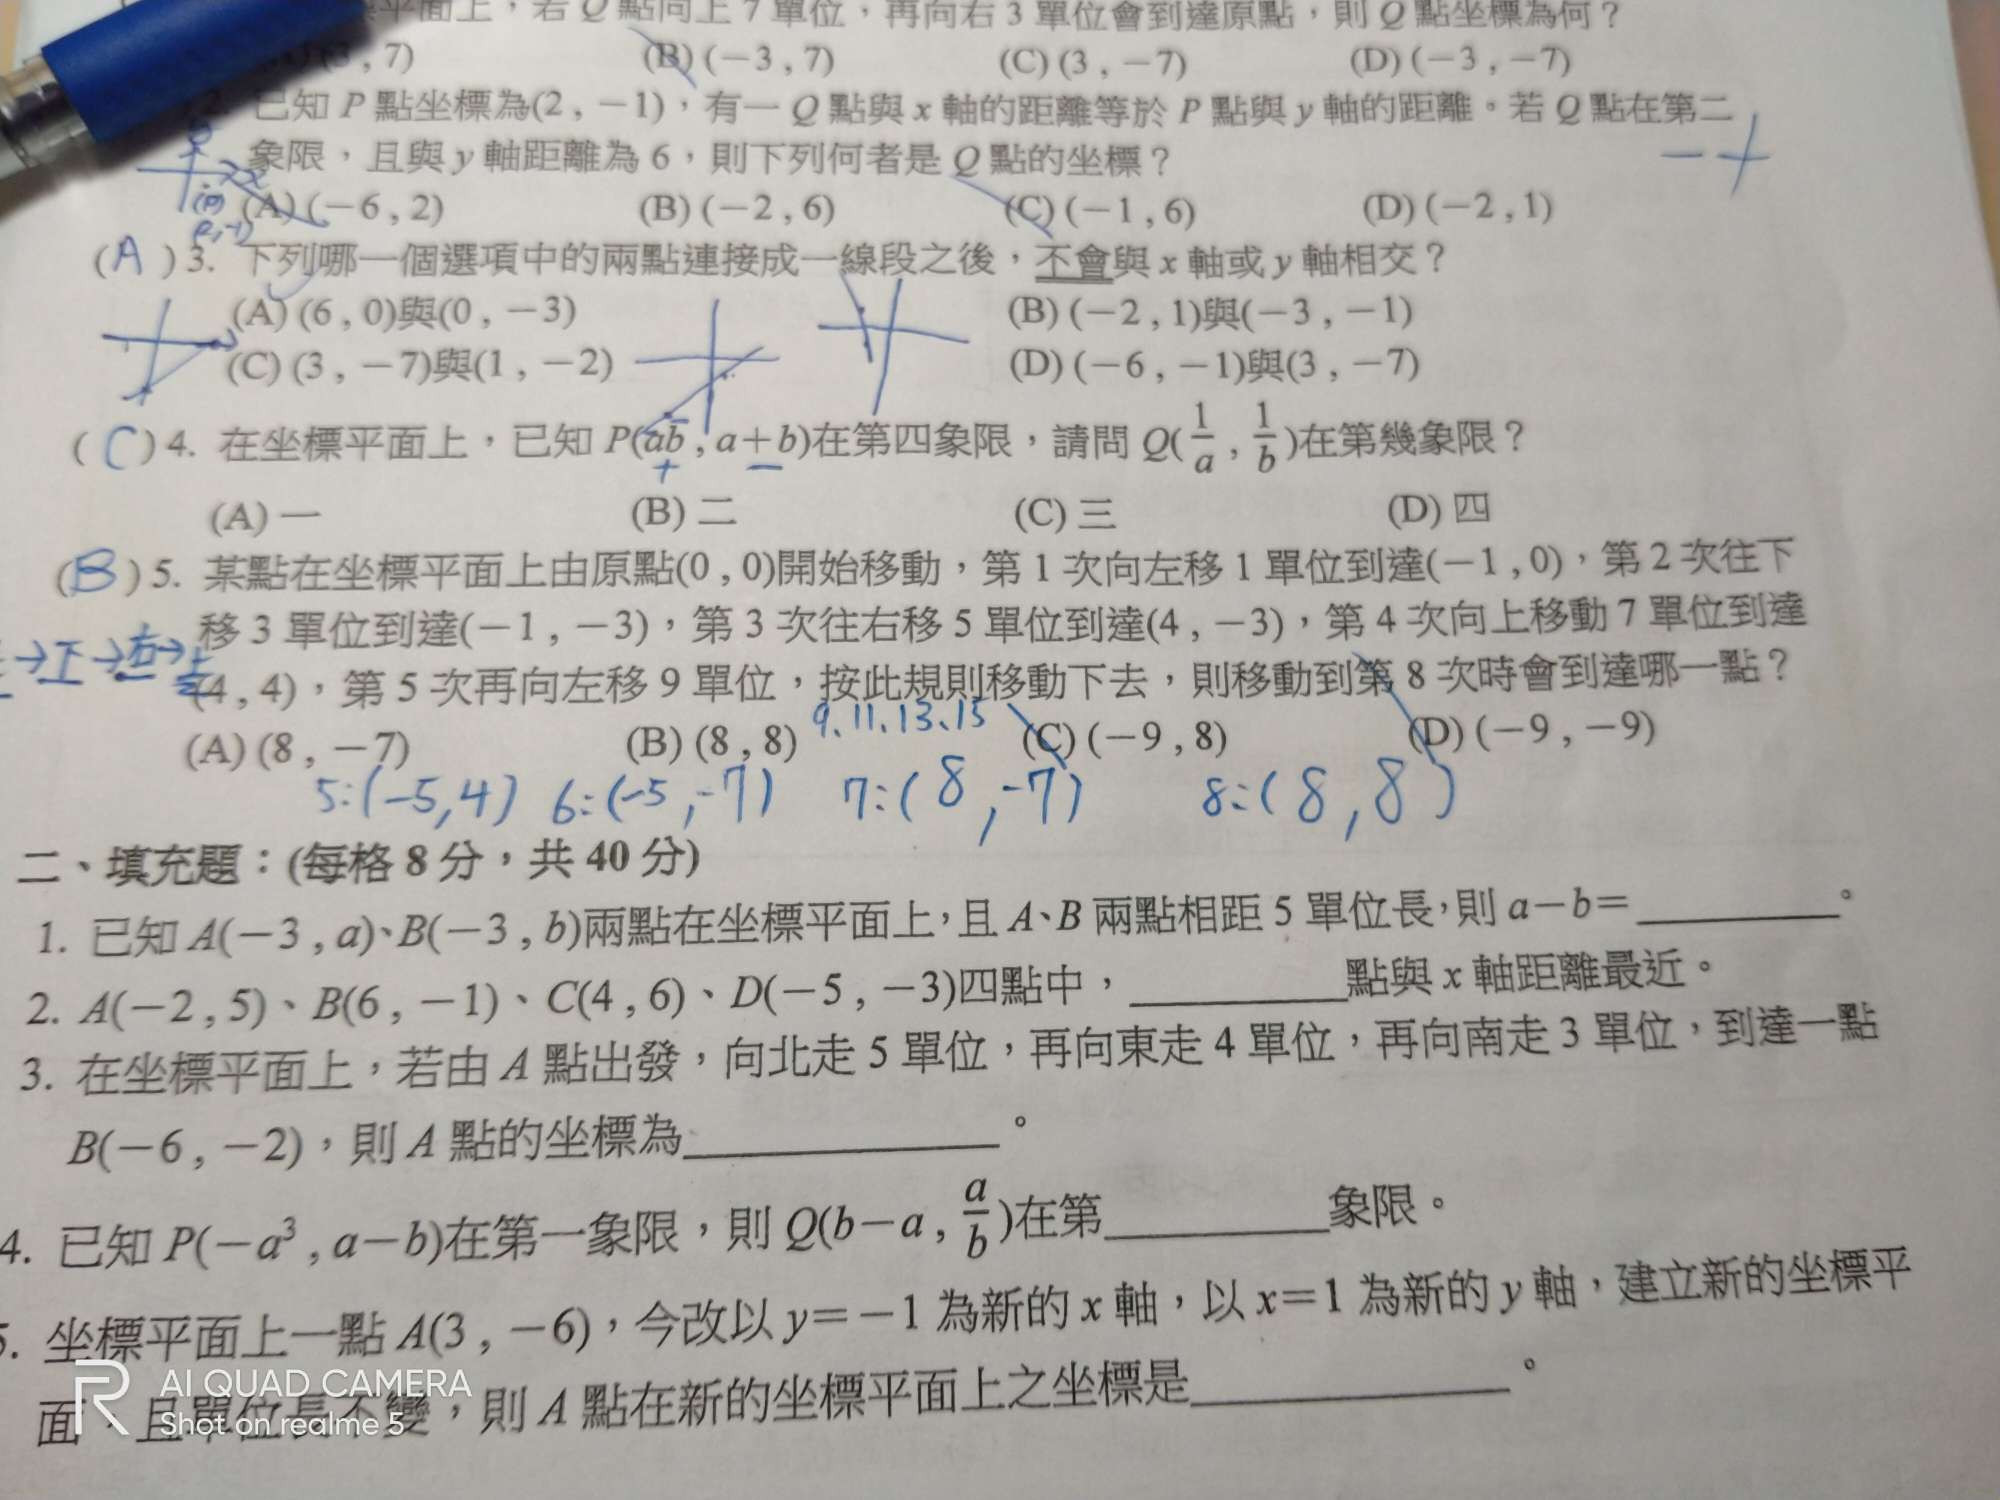 平面上，若 Q 點向上 7 單位，再向右 3 單位會到達原點，則 Q 點坐標為何？
(3 , 7) (B) (−3 , 7) (C) (3 , −7) (D) (−3 , −7)
2. 已知 P 點坐標為(2 , −1)，有一 Q 點與 x 軸的距離等於 P 點與 y 軸的距離。若 Q 點在第二
象限，且與 y 軸距離為 6，則下列何者是 Q 點的坐標？
− +
(A) (−6 , 2) (B) (−2 , 6) (C) (−1 , 6) (D) (−2 , 1)
(2,-1)
(A) 3. 下列哪一個選項中的兩點連接成一線段之後，不會與 x 軸或 y 軸相交？
(A) (6 , 0)與(0 , −3) (B) (−2 , 1)與(−3 , −1)
(C) (3 , −7)與(1 , −2) (D) (−6 , −1)與(3 , −7)
(C) 4. 在坐標平面上，已知 P(ab , a＋b)在第四象限，請問 Q(1/a , 1/b)在第幾象限？
+ −
(A) 一 (B) 二 (C) 三 (D) 四
(B) 5. 某點在坐標平面上由原點(0 , 0)開始移動，第 1 次向左移 1 單位到達(−1 , 0)，第 2 次往下
移 3 單位到達(−1 , −3)，第 3 次往右移 5 單位到達(4 , −3)，第 4 次向上移動 7 單位到達
→下→右→上
(4 , 4)，第 5 次再向左移 9 單位，按此規則移動下去，則移動到第 8 次時會到達哪一點？
9.11.13.15
(A) (8 , −7) (B) (8 , 8) (C) (−9 , 8) (D) (−9 , −9)
5:(-5,4) 6:(-5,-7) 7:(8,-7) 8:(8,8)
二、填充題：(每格 8 分，共 40 分)
1. 已知 A(−3 , a)、B(−3 , b)兩點在坐標平面上，且 A、B 兩點相距 5 單位長，則 a−b＝＿＿＿＿。
2. A(−2 , 5)、B(6 , −1)、C(4 , 6)、D(−5 , −3)四點中，＿＿＿＿點與 x 軸距離最近。
3. 在坐標平面上，若由 A 點出發，向北走 5 單位，再向東走 4 單位，再向南走 3 單位，到達一點
B(−6 , −2)，則 A 點的坐標為＿＿＿＿。
4. 已知 P(−a³ , a−b)在第一象限，則 Q(b−a , a/b)在第＿＿＿＿象限。
5. 坐標平面上一點 A(3 , −6)，今改以 y＝−1 為新的 x 軸，以 x＝1 為新的 y 軸，建立新的坐標平
面，且單位長不變，則 A 點在新的坐標平面上之坐標是＿＿＿＿。
R
AI QUAD CAMERA
Shot on realme 5